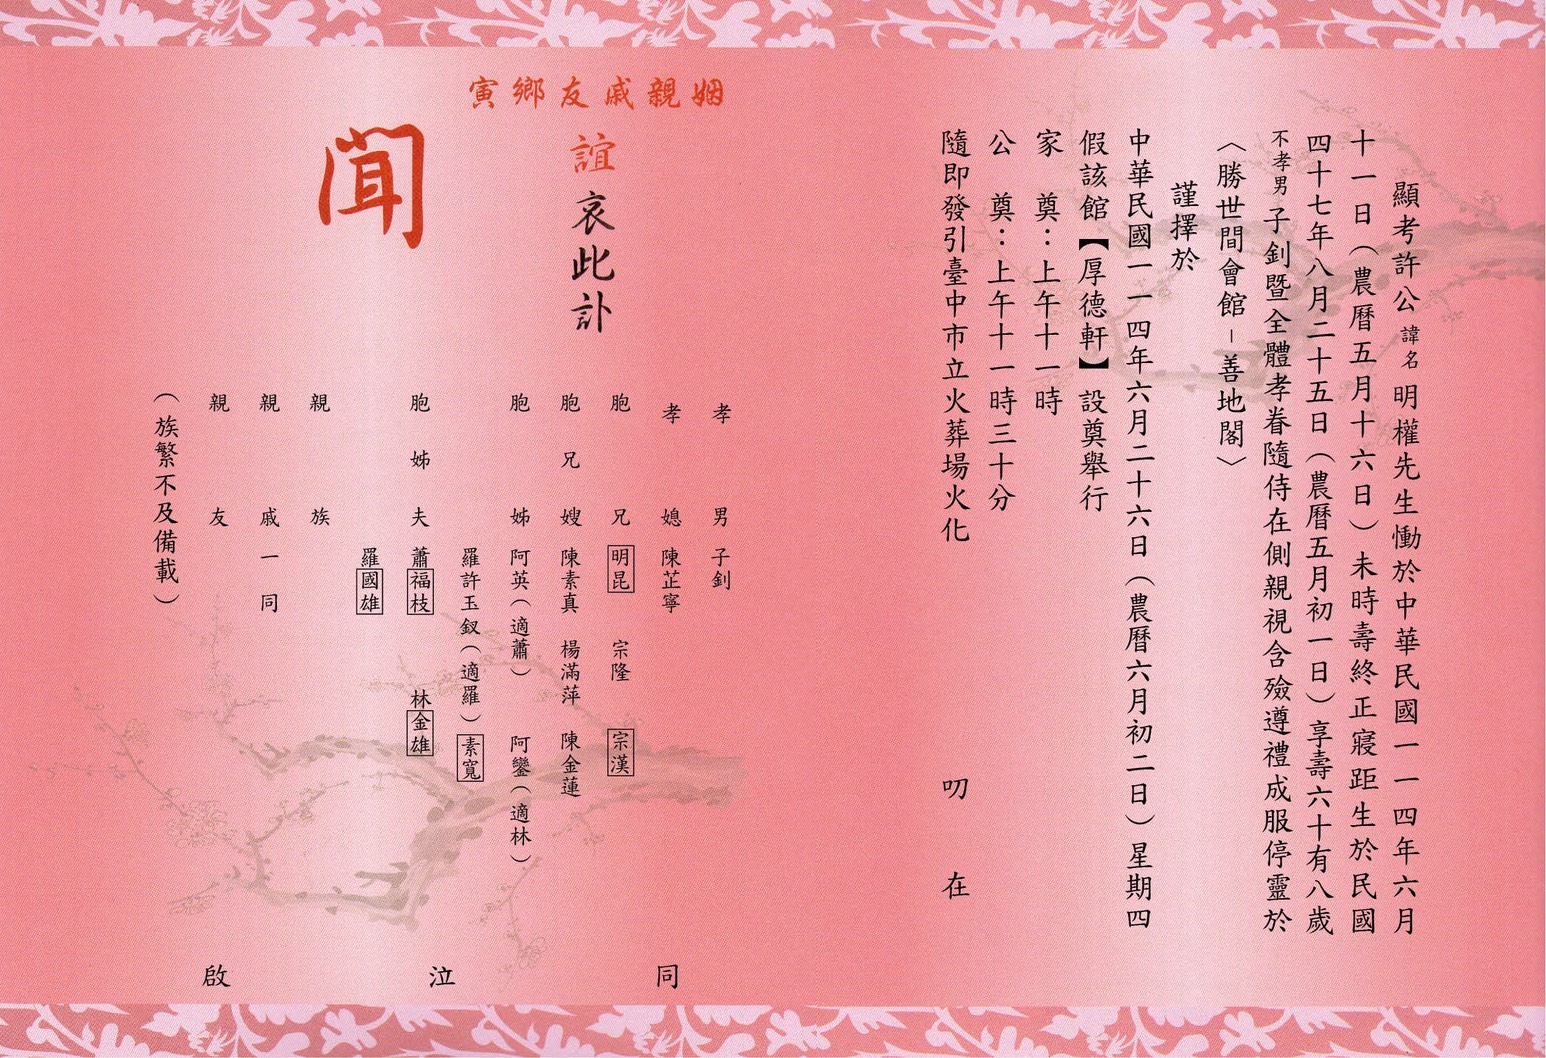 顯考許公諱名明權先生慟於中華民國一一四年六月
十一日（農曆五月十六日）未時壽終正寢距生於民國
四十七年八月二十五日（農曆五月初一日）享壽六十有八歲
不孝男子釗暨全體孝眷隨侍在側親視含殮遵禮成服停靈於
〈勝世間會館－善地閣〉
謹擇於
中華民國一一四年六月二十六日（農曆六月初二日）星期四
假該館【厚德軒】設奠舉行
家　奠：上午十一時
公　奠：上午十一時三十分
隨即發引臺中市立火葬場火化
叨　在
姻親戚友鄉寅
誼哀此訃
聞
孝男　子釗
孝媳　陳芷寧
胞兄　明昆　宗隆　宗漢
胞兄嫂　陳素真　楊滿萍　陳金蓮
胞姊　阿英（適蕭）　阿鑾（適林）
羅許玉釵（適羅）　素寬
胞姊夫　蕭福枝　林金雄
羅國雄
親族
親戚一同
親友
（族繁不及備載）
同　泣　啟